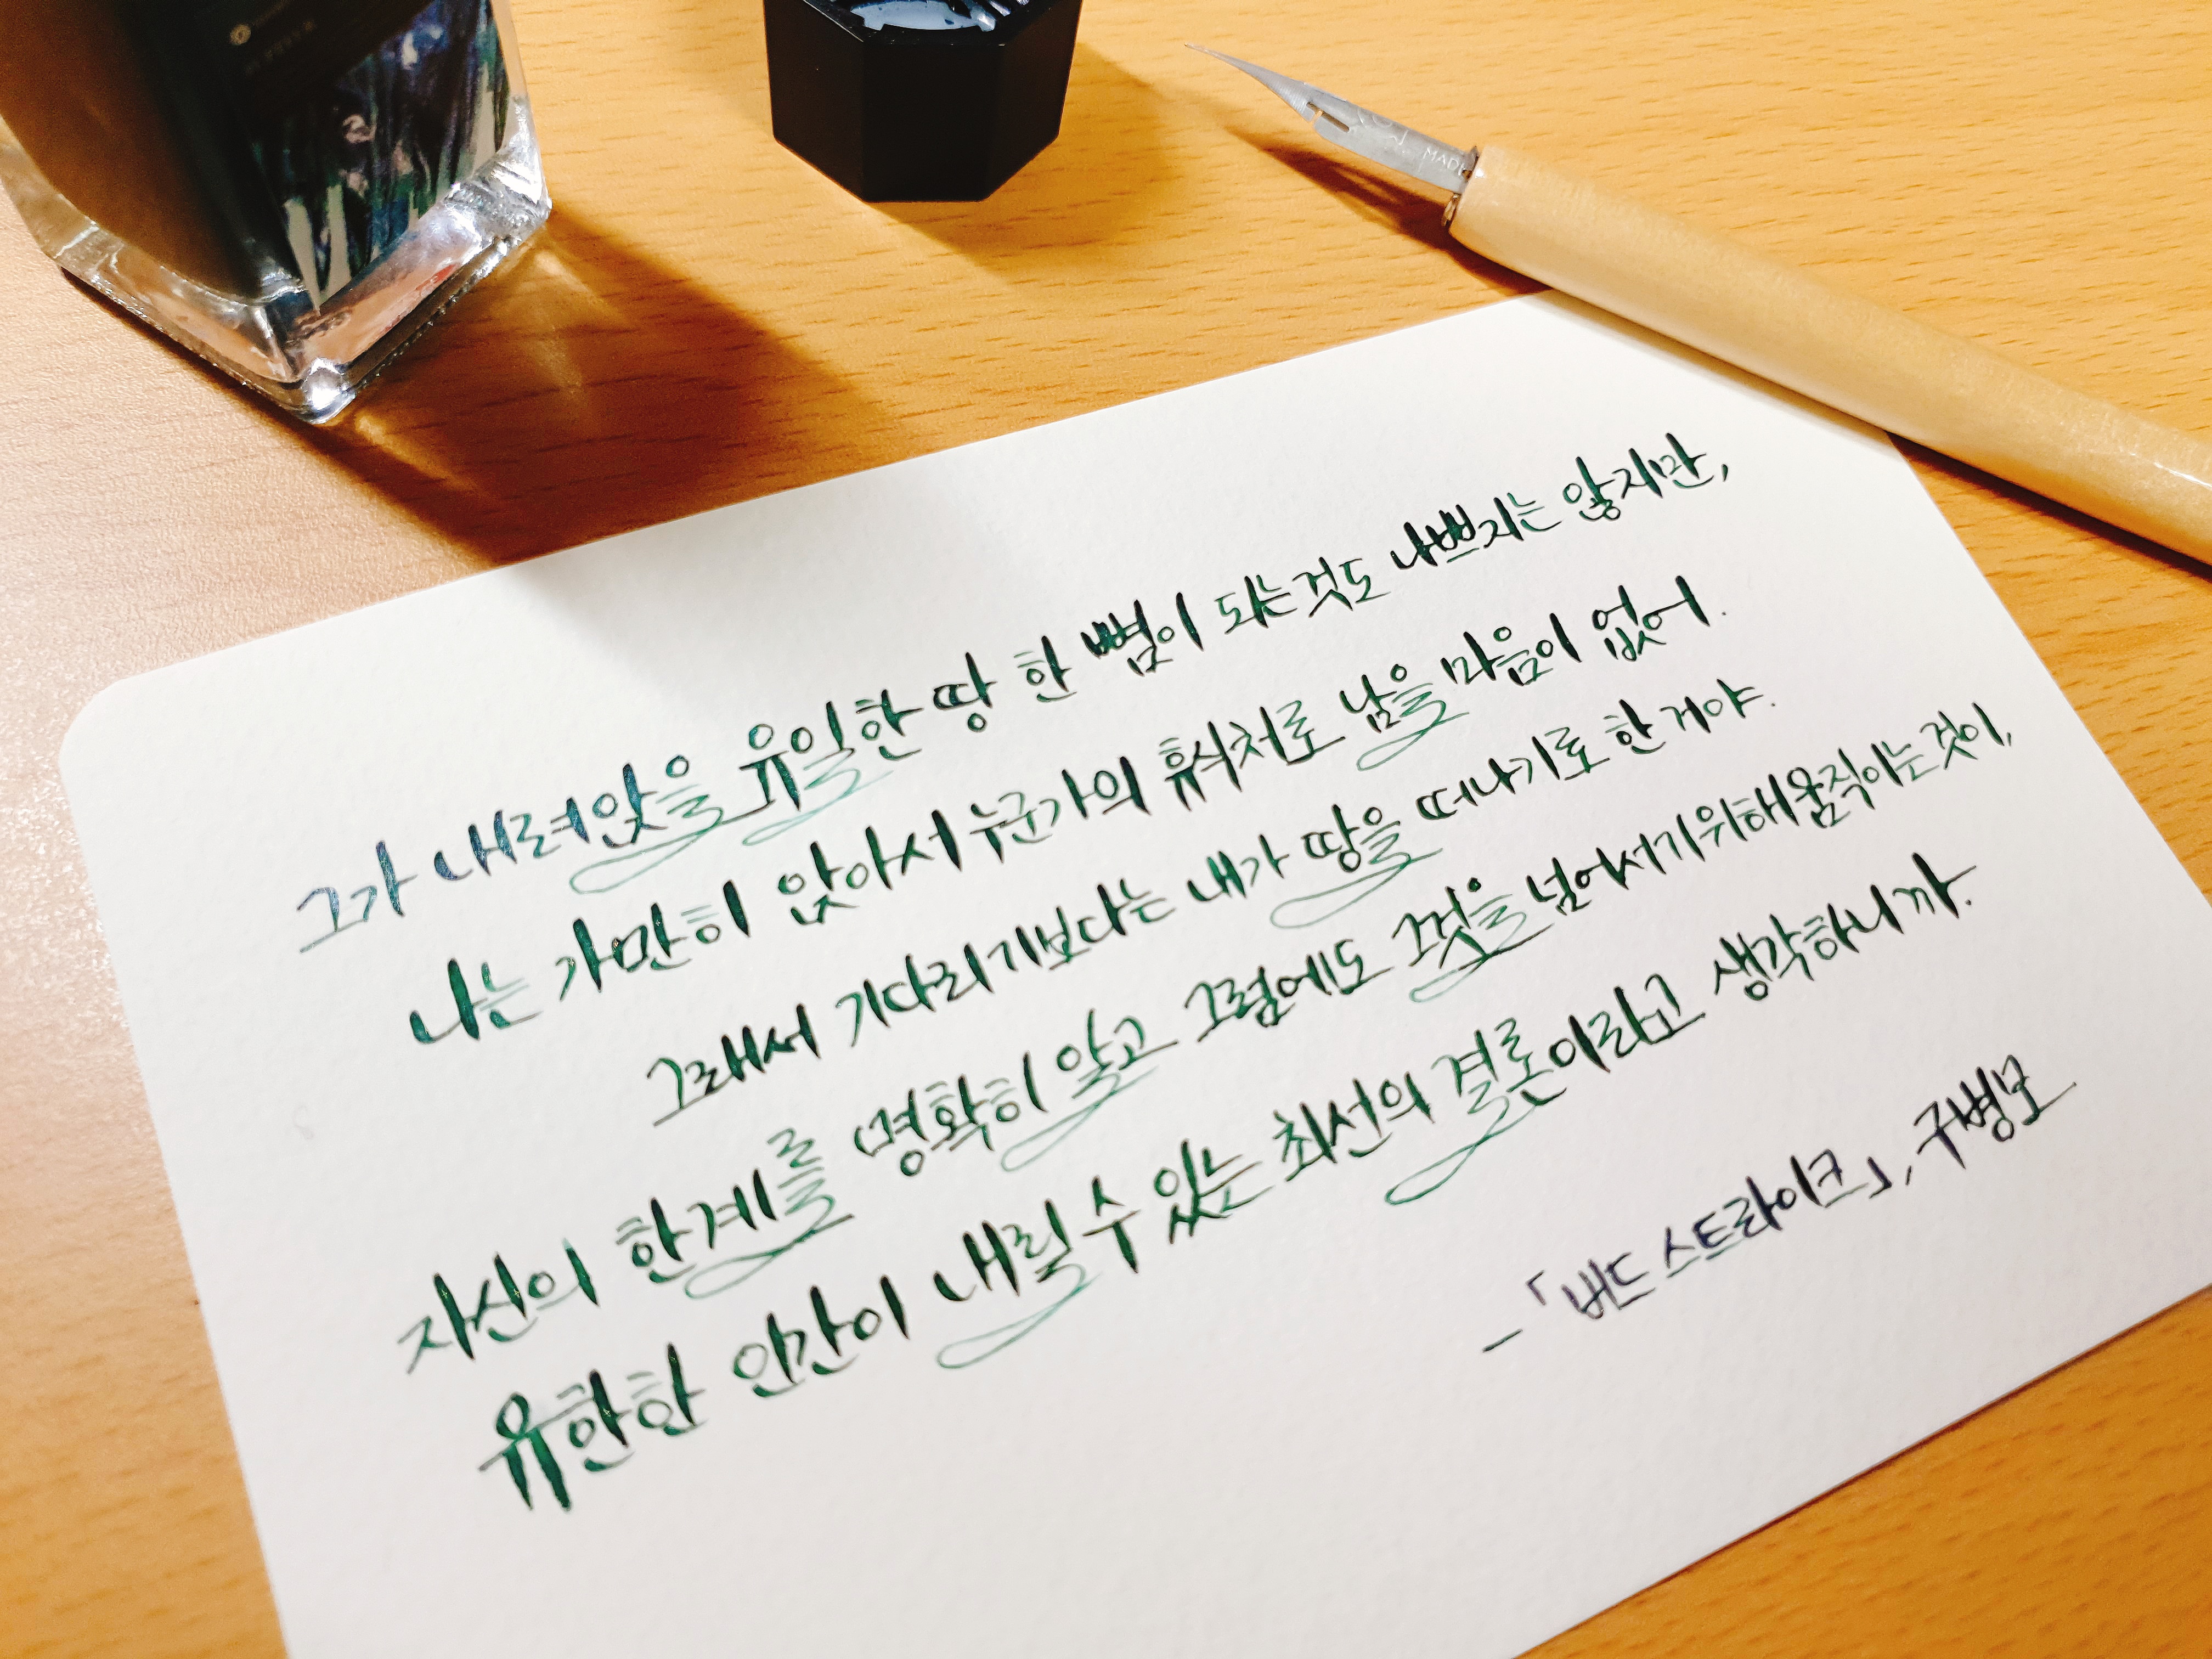 그가 내려앉을 유일한 땅 한 뼘이 되는것도 나쁘지는 않지만,
나는 가만히 앉아서 누군가의 휴식처로 남을 마음이 없어.
그래서 기다리기보다는 내가 땅을 떠나기로 한 거야.
자신의 한계를 명확히 알고 그럼에도 그것을 넘어서기위해 움직이는것이,
유한한 인간이 내릴 수 있는 최선의 결론이라고 생각하니까.
-「버드 스트라이크」, 구병모